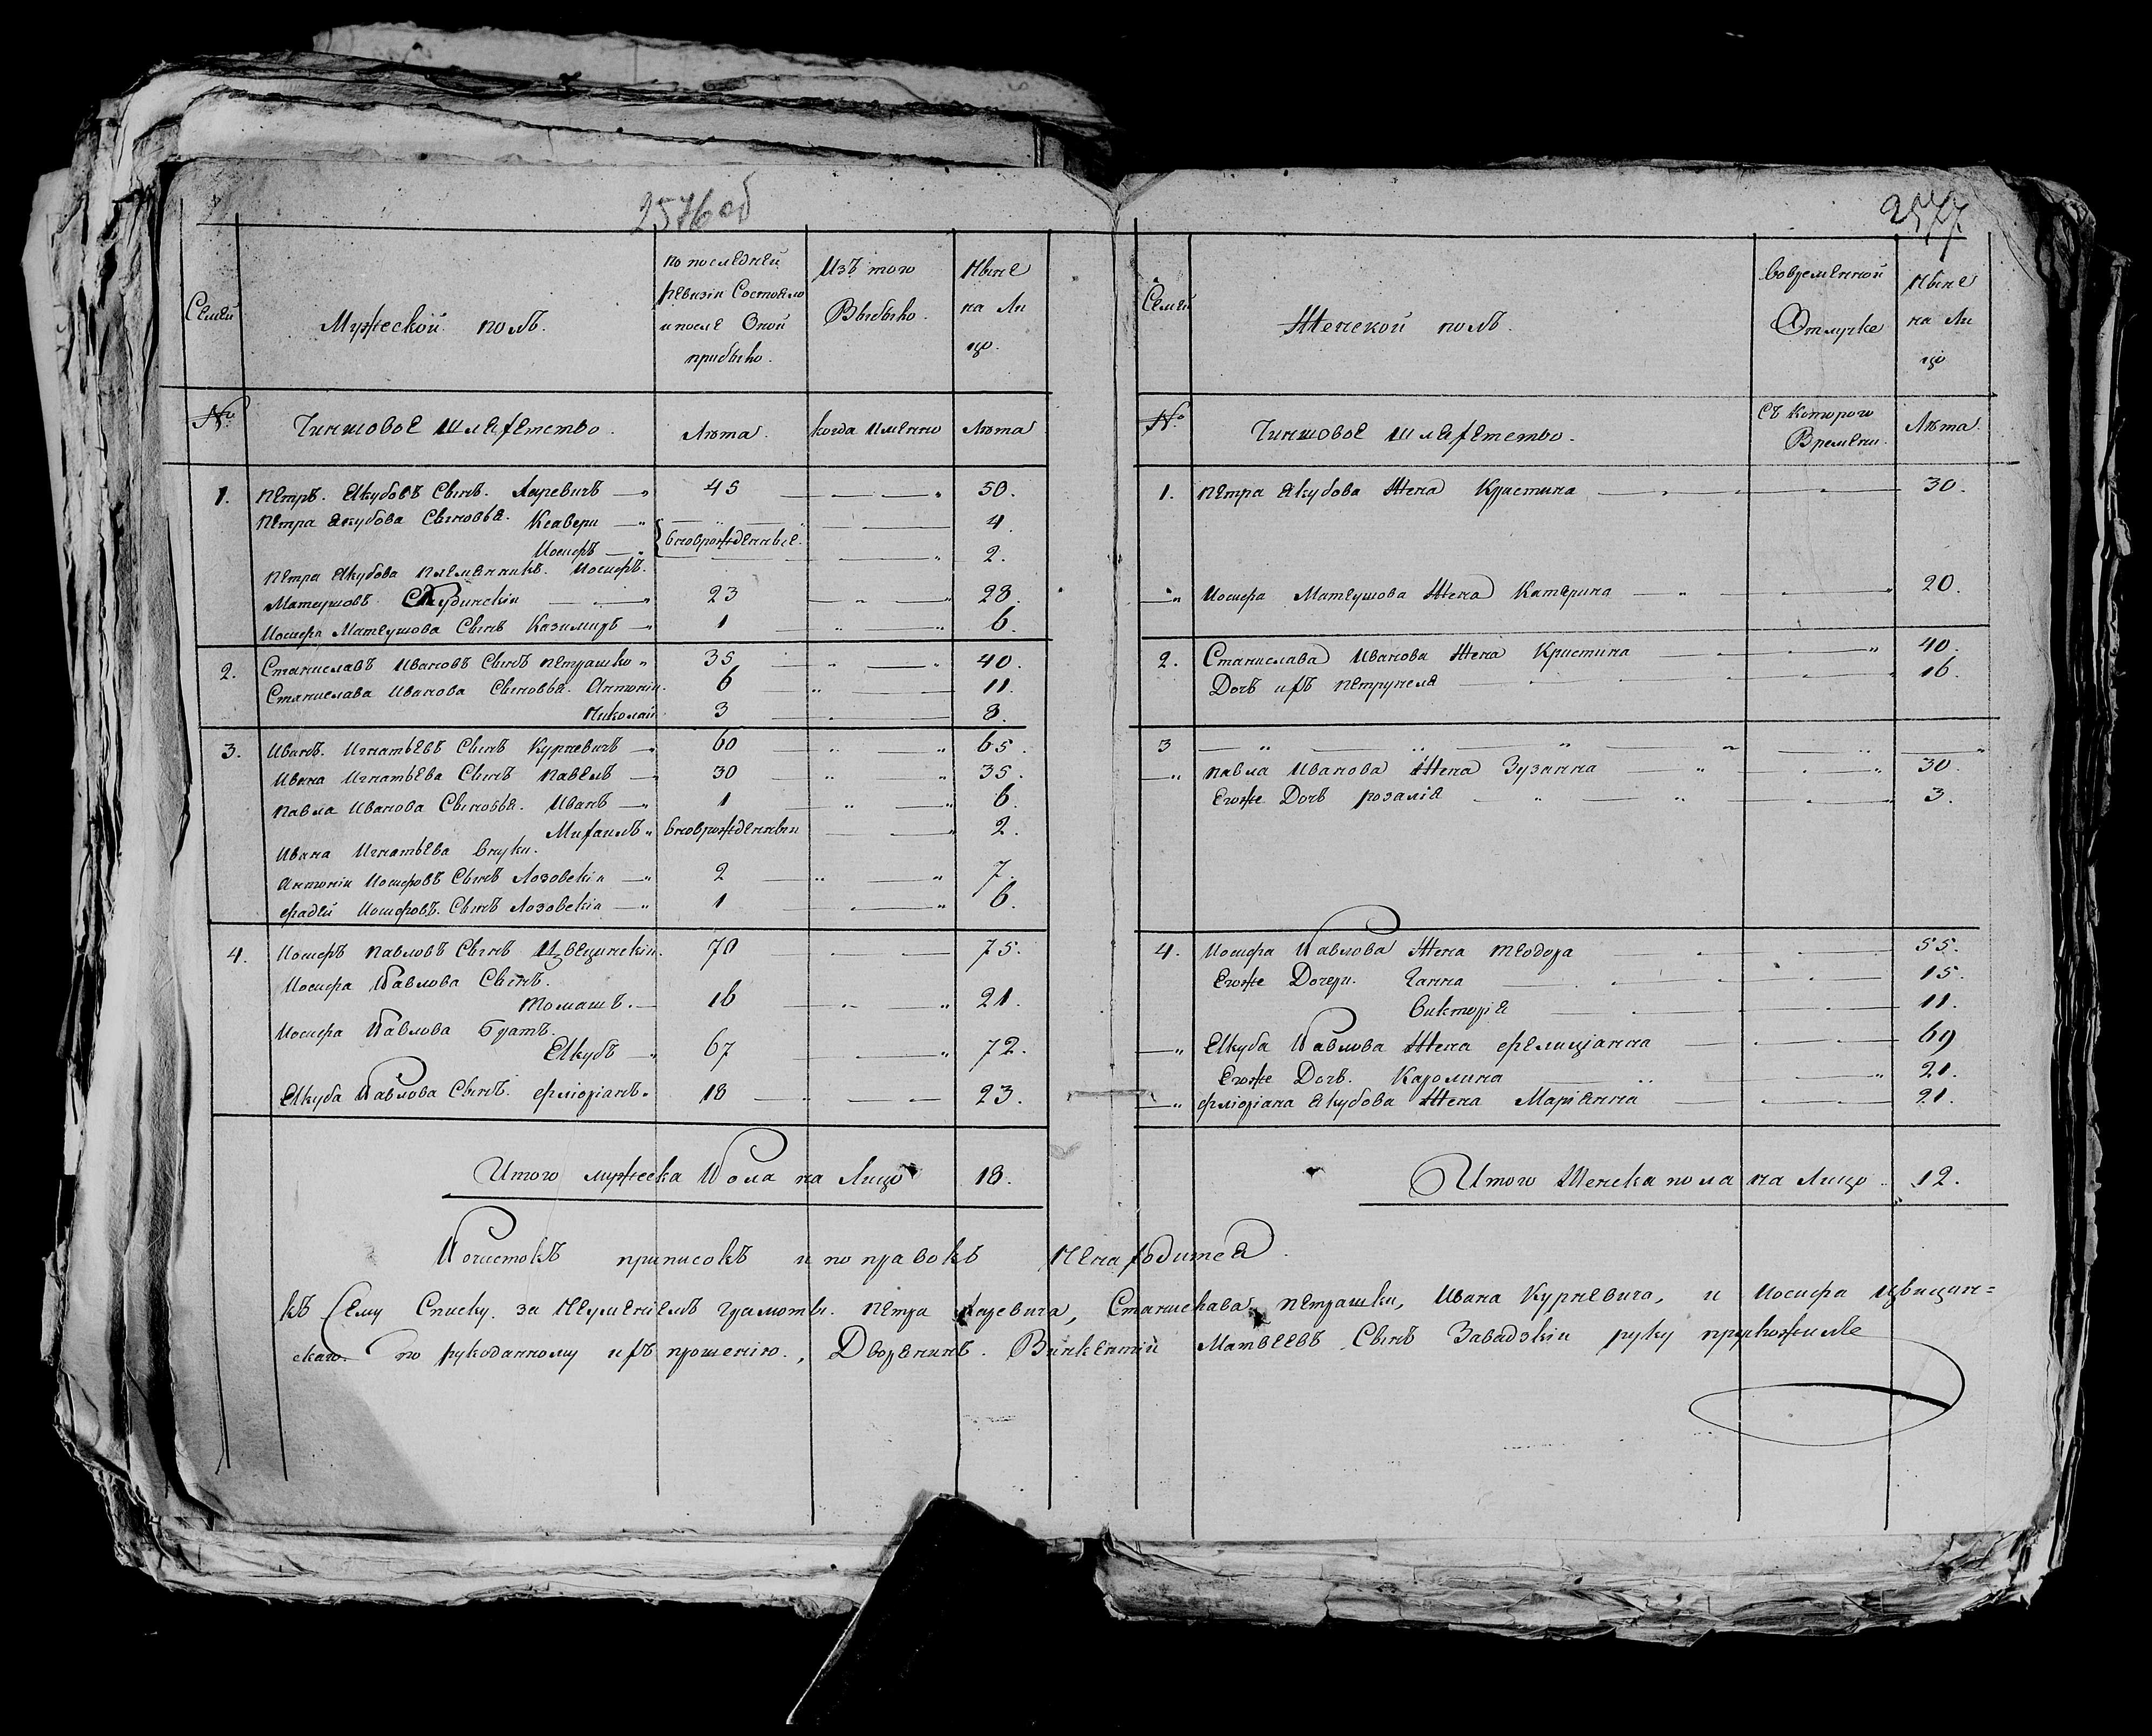 2576об
Семьи
Мужеской полъ.
по последней
ревизіи Состояло
и после Оной
прибыло.
Изъ того
Выбыло.
Ныне
на Ли
цо.
№
Чиншовое шляхетство.
Лѣта.
когда именно
Лѣта
1. Петръ Якубовъ Сынъ 45 50.
Петра Якубова Сыновья. Ксавери 4
Иосифъ новорожденные. 2.
Петра Якубова племянникъ. Иосифъ
Матеушовъ 23 28.
Иосифа Матеушова Сынъ Казимиръ 1 6.
2. Станиславъ Ивановъ Сынъ Петрашко 35 40.
Станислава Иванова Сыновья. Антоніи. 6 11.
Николай 3 8.
3. Иванъ Игнатьевъ Сынъ Курневичъ 60 65.
Ивана Игнатьева Сынъ Павелъ 30 35.
Павла Иванова Сыновья. Иванъ 1 6.
Михаилъ новорожденныи 2.
Ивана Игнатьева внуки.
Антоніи Иосифовъ Сынъ Лозовскіи 2 7.
Фадей Иосифовъ Сынъ Лозовскіи 1 6.
4. Иосифъ Павловъ Сынъ Цвецинскіи. 70 75.
Иосифа Павлова Сынъ.
Томашъ. 16 21.
Иосифа Павлова братъ.
Якубъ 67 72.
Якуба Павлова Сынъ. Флюріанъ. 18 23.
Итого мужеска Пола на Лицо 18.
2577
Семьи
Женской полъ.
Вовременной
Отлучке
Ныне
на Ли
цо
№
Чиншовое шляхетство.
Съ Которого
Времени.
Лѣта.
1. Петра Якубова Жена Кристина 30.
Иосифа Матеушова Жена Катерина 20.
2. Станислава Иванова Жена Кристина 40.
Дочь ихъ Петрунеля 16.
3
Павла Иванова Жена Зузанна 30.
Егоже Дочь Розалія 3.
4. Иосифа Павлова Жена Теодора 55.
Егоже Дочери. Ганна 15.
Викторія 11.
Якуба Павлова Жена Фелиціанна 69
Егоже Дочь. Каролина 21.
Флюріана Якубова Жена Маріянна 21.
Итого Женска пола на Лицо 12.
Почистокъ приписокъ и поправокъ Ненаходится.
Къ Сему Списку за Неуменіемъ грамоты. Петра Станислава Петрашки, Ивана Курневича, и Иосифа Цвицин=
скаго. по рукоданному ихъ прошенію., Дворянинъ. Винкентий Матвеевъ Сынъ Завадзкіи руку приложилъ